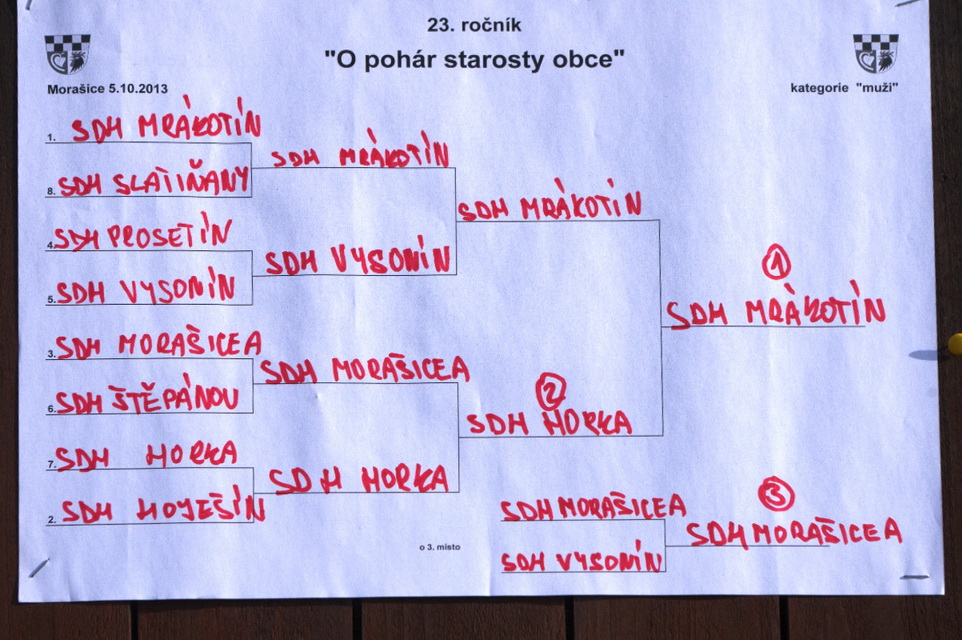 23. ročník
"O pohár starosty obce"
Morašice 5.10.2013
kategorie "muži"
1. SDH MRÁKOTÍN
8. SDH SLATIŇANY
4. SDH PROSETÍN
5. SDH VYSONÍN
3. SDH MORAŠICE A
6. SDH ŠTĚPÁNOV
7. SDH HORKA
2. SDH HOJEŠÍN
SDH MRÁKOTÍN
SDH VYSONÍN
SDH MORAŠICE A
SDH HORKA
SDH MRÁKOTÍN
2
SDH HORKA
1
SDH MRÁKOTÍN
o 3. místo
SDH MORAŠICE A
SDH VYSONÍN
3
SDH MORAŠICE A